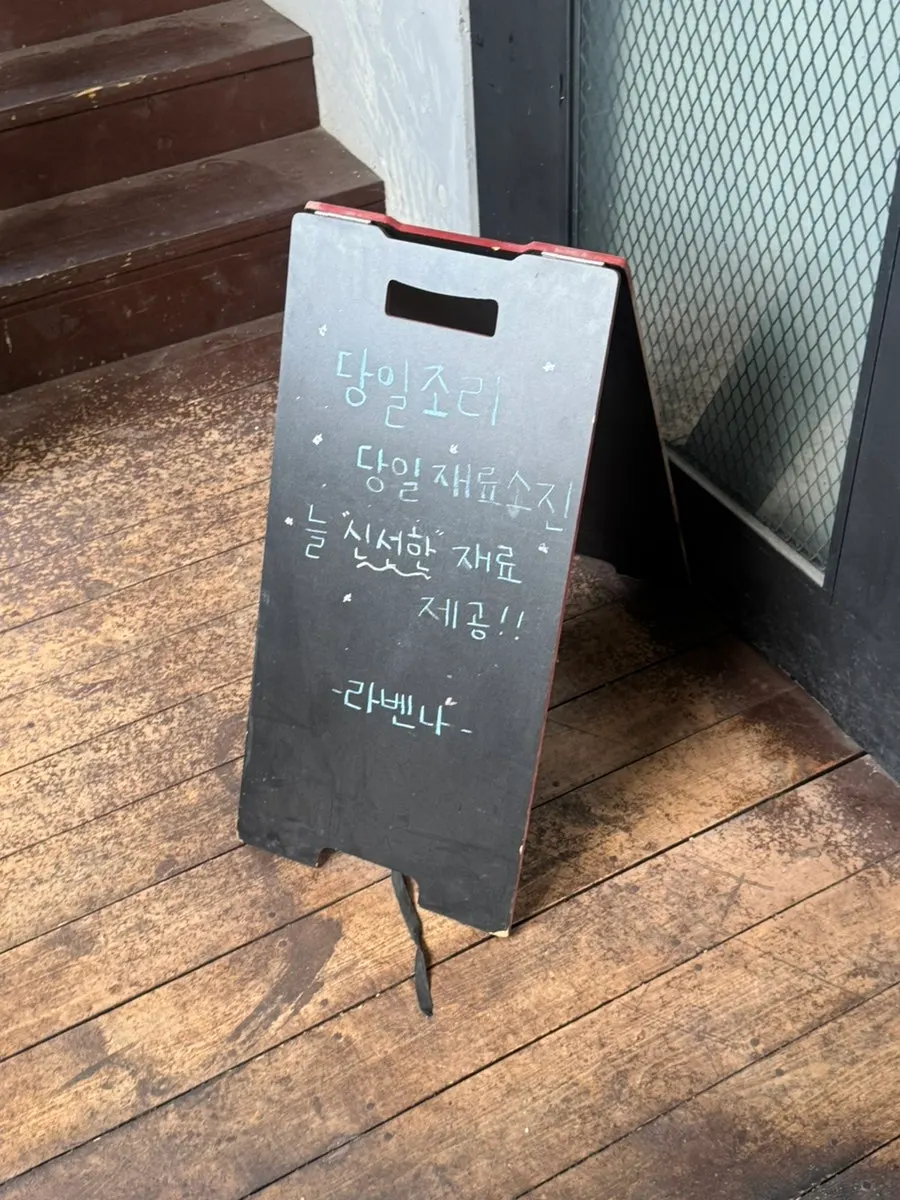 당일조리
당일재료소진
늘 "신선한" 재료
제공!!
-라벤나-